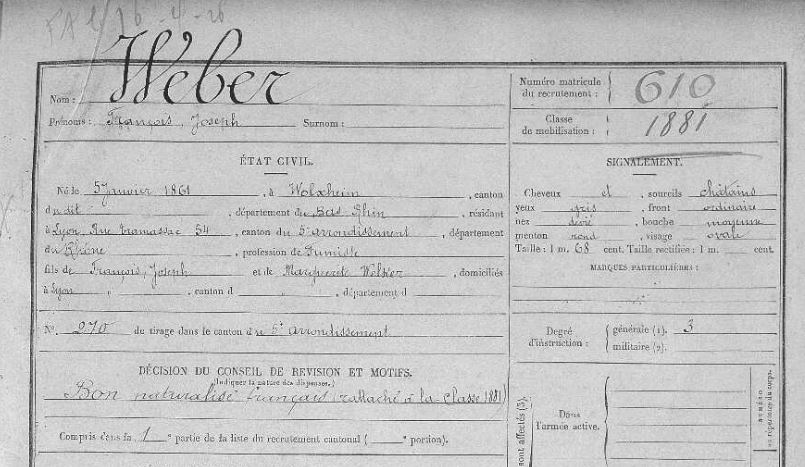 FA 16-4-26
Nom : Weber
Prénoms : François, Joseph Surnom :
Numéro matricule du recrutement : 610
Classe de mobilisation : 1881
ÉTAT CIVIL.
Né le 5 Janvier 1861, à Wolxheim, canton
du dit, département du Bas Rhin, résidant
à Lyon, Rue Tramassac 54, canton du 5e arrondissement, département
du Rhône, profession de Fumiste
fils de François, Joseph et de Marguerite, domiciliés
à Lyon, canton d , département d
No. 270 de tirage dans le canton de 5e Arrondissement
DÉCISION DU CONSEIL DE RÉVISION ET MOTIFS.
(Indiquer la nature des dispenses.)
Bon naturalisé français rattaché à la classe 1881
Compris dans la 1e partie de la liste du recrutement cantonal ( e portion).
SIGNALEMENT.
Cheveux et, sourcils châtains
yeux gris, front ordinaire
nez , bouche moyenne
menton rond, visage ovale
Taille : 1 m. 68 cent. Taille rectifiée : 1 m. cent.
MARQUES PARTICULIÈRES :
Degré d'instruction : générale (1). 3
militaire (2).
Dans l'armée active.
sont affectés (3).
NUMÉRO
au répertoire du corps.